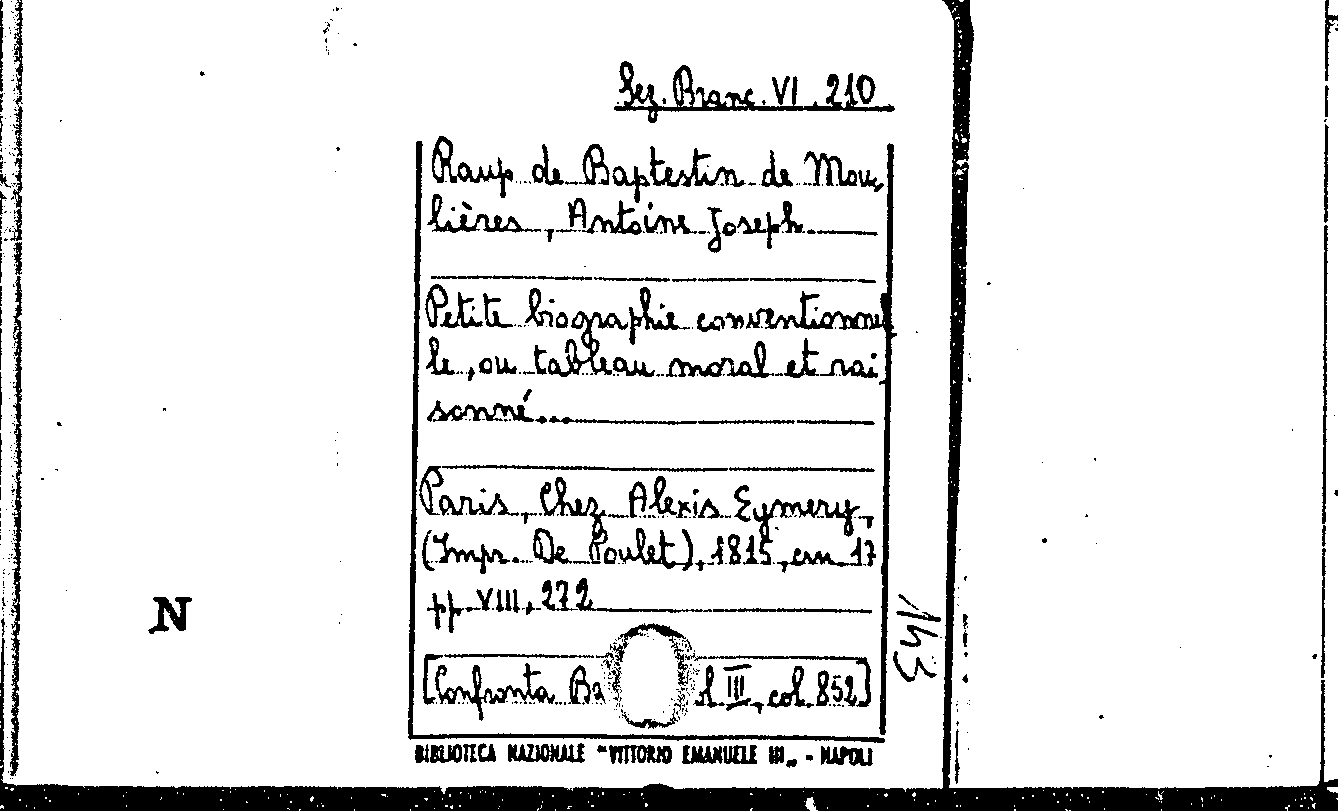 Sez. Branc. VI. 210
Raup de Baptestin de Mou-
lières, Antoine Joseph
Petite biographie conventionnel
le, ou tableau moral et rai
sonné...
Paris, Chez Alexis Eymery,
(Impr. De Poulet), 1815, cm 17
pp. VIII, 272
143
N
[Confronta III, col. 852]
BIBLIOTECA NAZIONALE "VITTORIO EMANUELE III„ - NAPOLI